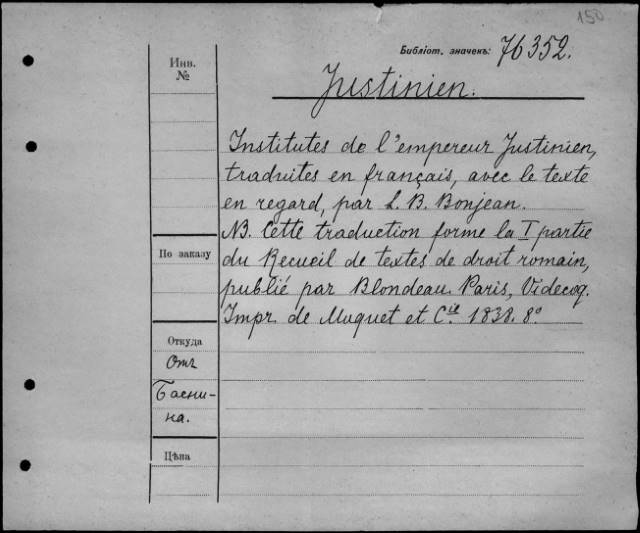 150
Библіот. значекъ: 76352.
Инв.
№
Justinien.
Institutes de l'empereur Justinien,
traduites en français, avec le texte
en regard, par L. B. Bonjean.
NB. Cette traduction forme la I partie
du Recueil de textes de droit romain,
publié par Blondeau. Paris, Videcoq.
Impr. de Moquet et Cie 1838. 8º
По заказу
Откуда
Отъ
Басни-
на.
Цѣна